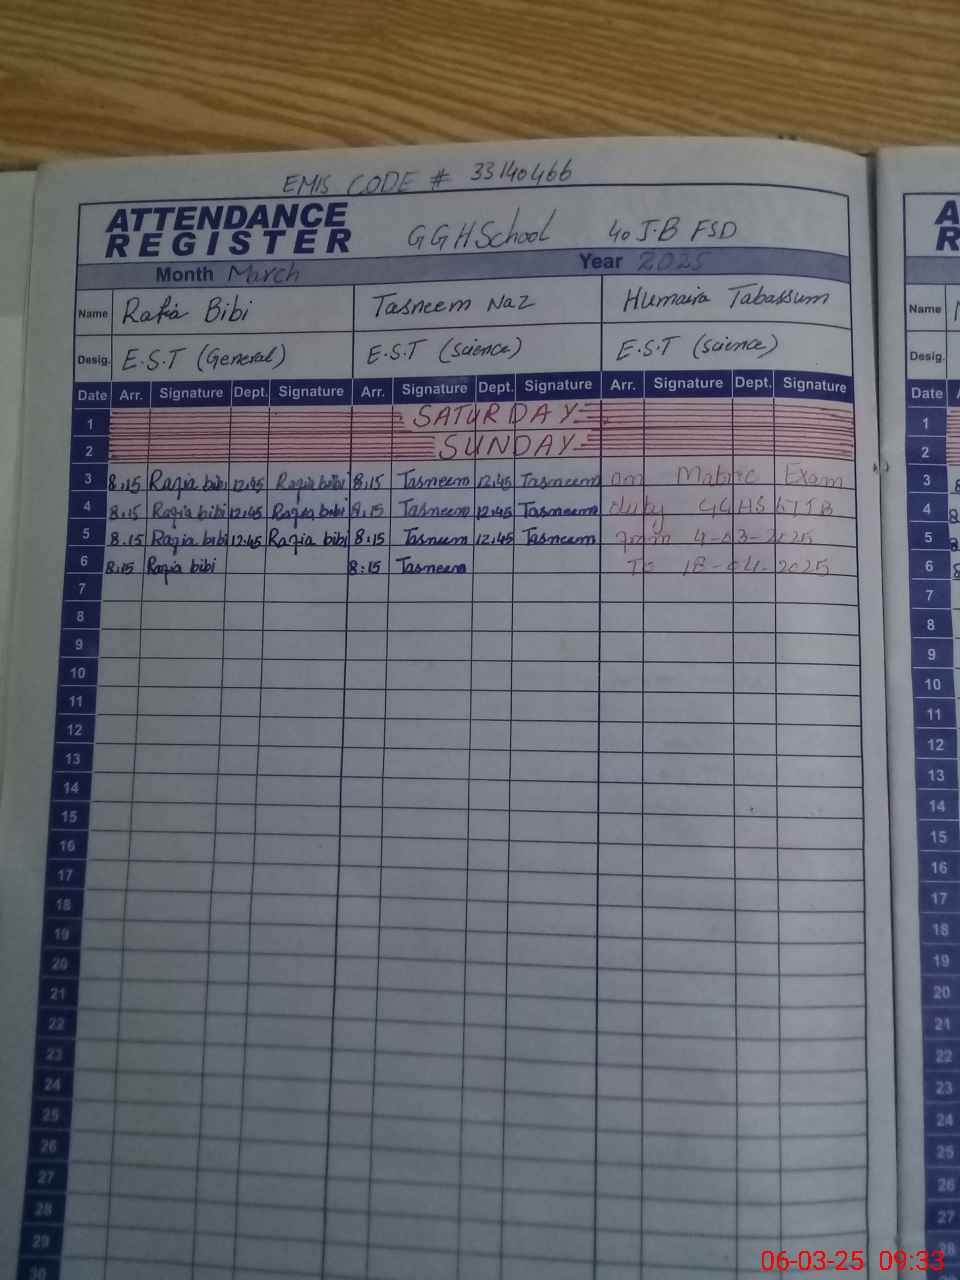 EMIS CODE # 33140466
ATTENDANCE REGISTER GGHSchool 40 J.B FSD
Month March Year 2025
Name Rafia Bibi Tasneem Naz Humaira Tabassum
Desig. E.S.T (General) E.S.T (Science) E.S.T (Science)
Date Arr. Signature Dept. Signature Arr. Signature Dept. Signature Arr. Signature Dept. Signature
1 SATURDAY
2 SUNDAY
3 8:15 Razia bibi 12:45 Razia bibi 8:15 Tasneem 12:45 Tasneem on Matric Exam
4 8:15 Razia bibi 12:45 Razia bibi 8:15 Tasneem 12:45 Tasneem duty GGHS
5 8:15 Razia bibi 12:45 Razia bibi 8:15 Tasneem 12:45 Tasneem from 4-03-2025
6 8:15 Razia bibi 8:15 Tasneem To 18-04-2025
7
8
9
10
11
12
13
14
15
16
17
18
19
20
21
22
23
24
25
26
27
28
29
30
Name
Desig.
Date
1
2
3
4
5
6
7
8
9
10
11
12
13
14
15
16
17
18
19
20
21
22
23
24
25
26
27
28
06-03-25 09:33